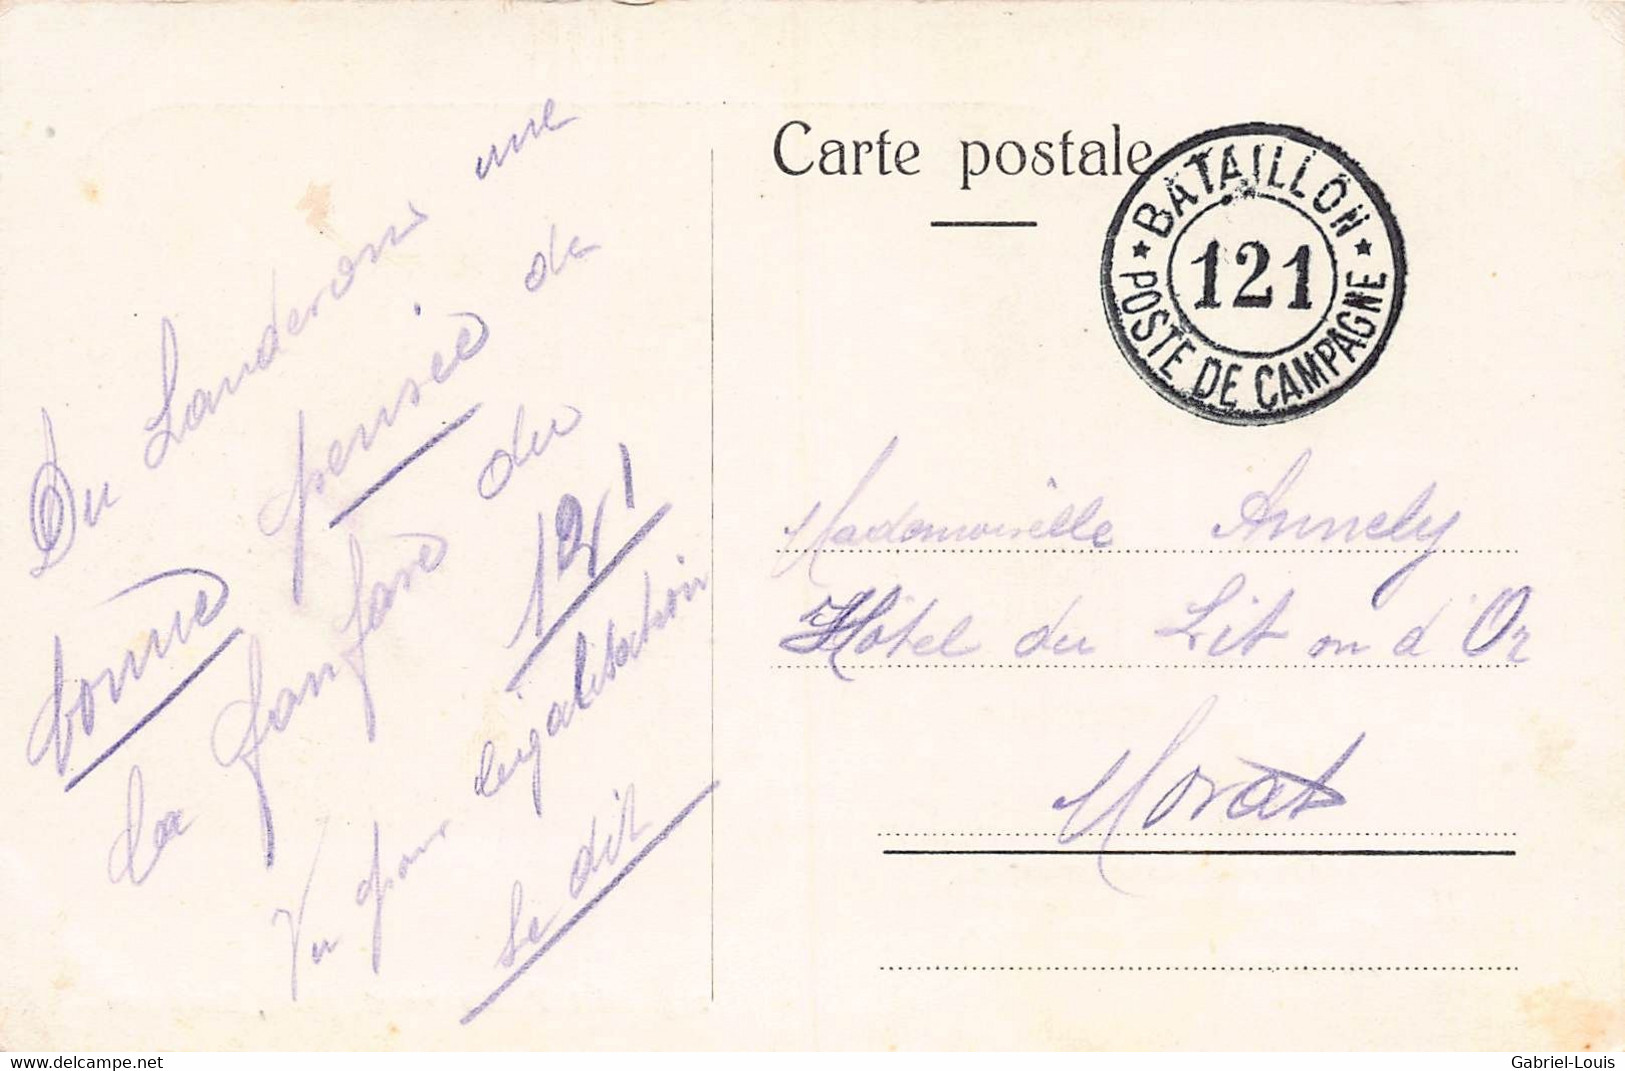 Du Landeron une
bonne pensée de
la fanfare du
121
Vu pour legalisation
Le dit
Carte postale
BATAILLON
121
POSTE DE CAMPAGNE
Mademoiselle Annely
Hôtel du Lit on d'Or
Morat
www.delcampe.net
Gabriel-Louis